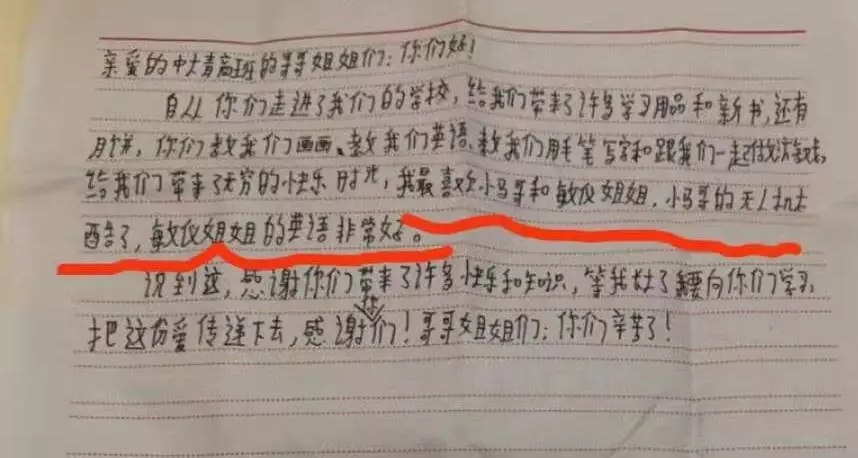 亲爱的中大青高班的哥哥姐姐们：你们好！
自从你们走进了我们的学校，给我们带来了许多学习用品和新书，还有
月饼，你们教我们画画、教我们英语、教我们用毛笔写字和跟我们一起做游戏，
给我们带来了无穷的快乐时光，我最喜欢小马哥和敏仪姐姐，小马哥的无人机太
酷了，敏仪姐姐的英语非常好。
说到这，感谢你们带来了许多快乐和知识，等我大了要向你们学习，
把这份爱传递下去，感谢你们！哥哥姐姐们：你们辛苦了！